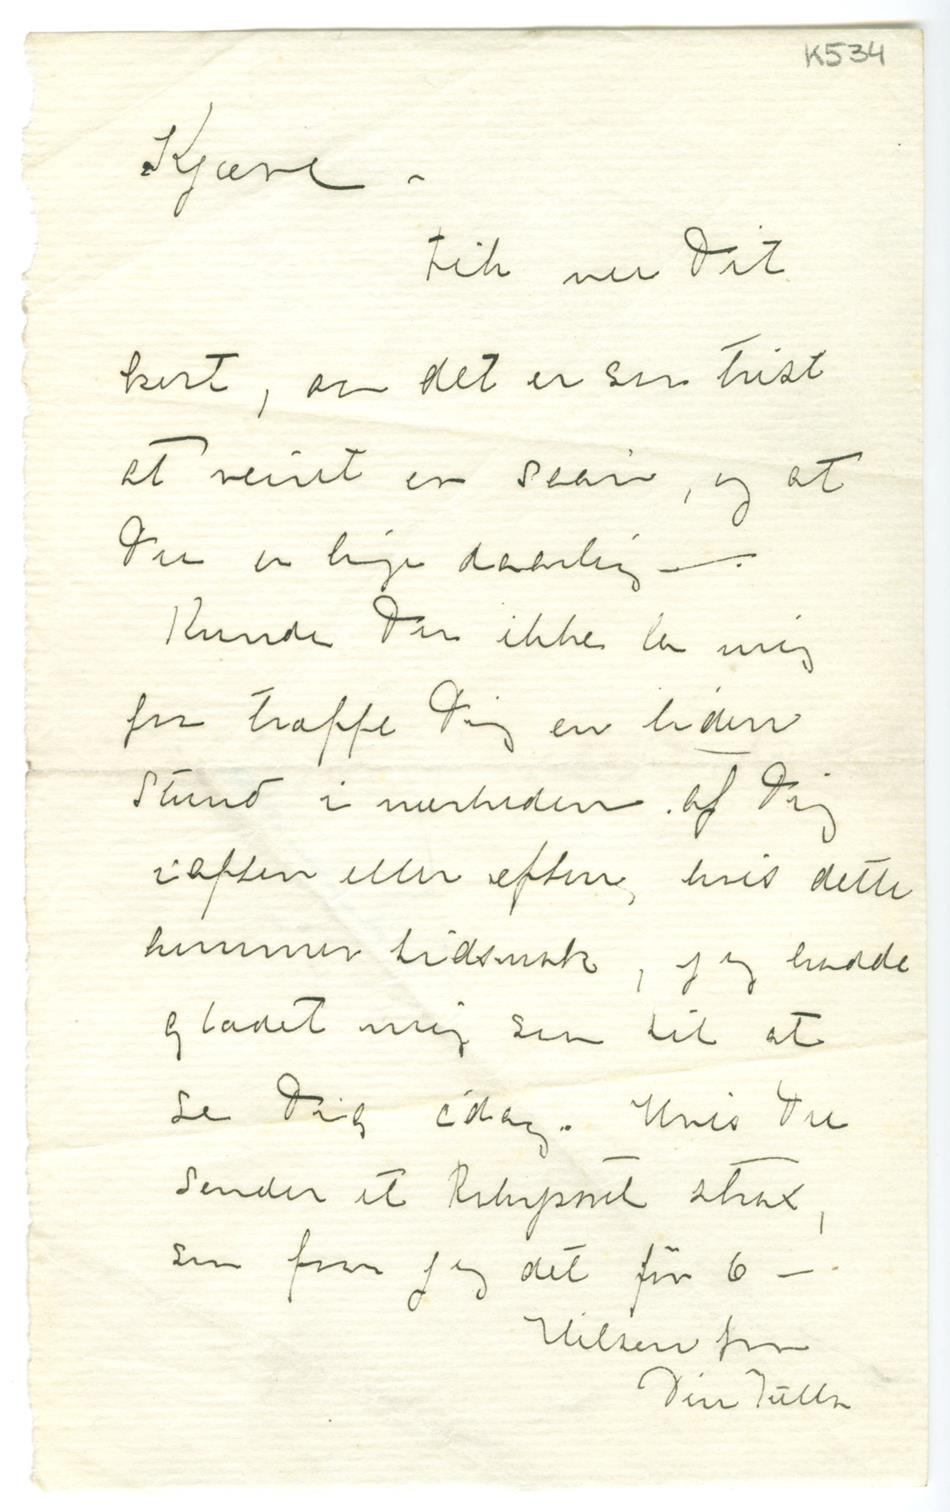 K534
Kjære –
Fik nu Dit
kort, aa det er saa trist
at veiret er saan, og at
Du er lige daarlig –
Kunde Du ikke la mig
faa træffe Dig en liden
Stund i nærheden af Dig
iaften eller efterm, hvis dette
kommer tidsnok, jeg hadde
glædet mig saa til at
se Dig idag. Hvis Du
sender et Rohrpost strax,
saa faar jeg det før 6 –
Hilsen fra
Din Tulla